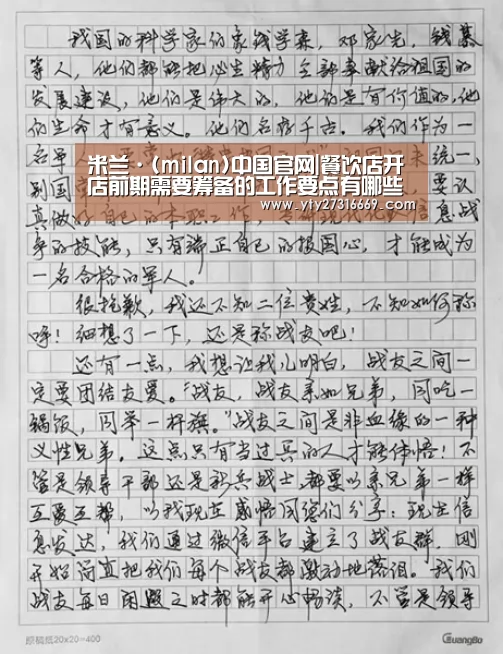 我国的科学家们象钱学森，邓家先，钱
等人，他们都能把必生精力全部奉献给祖国的
发展建设，他们是伟大的，他们是有价值的，他
们生命才有意义。他们名存千古。我们作为一
名军人
米兰·(milan)中国官网|餐饮店开
店前期需要筹备的工作要点有哪些
www,yty27316669.com
统一，
别国
要认
真做好自己的本职工作，
信息战
争的技能，只有端正自己的报国心，才能成为
一名合格的军人。
很抱歉，我还不知二位贵姓，不知如何称
呼！细想了一下，还是称战友吧！
还有一点，我想让我儿明白，战友之间一
定要团结友爱。“战友，战友亲如兄弟，同吃一
锅饭，同举一杆旗。”战友之间是非血缘的一种
义性兄弟。这点只有当过兵的人才能体悟！不
管是领导干部还是新兵战士，都要以亲兄弟一样
互爱互帮，以我现在感情同您们分享：现在信
息发达，我们通过微信平台建立了战友群，刚
开始简直把我们每个战友都激动地落泪。我们
战友每日闲暇之时都能开心畅谈，不管是领导
原稿纸20x20=400
GuangBo